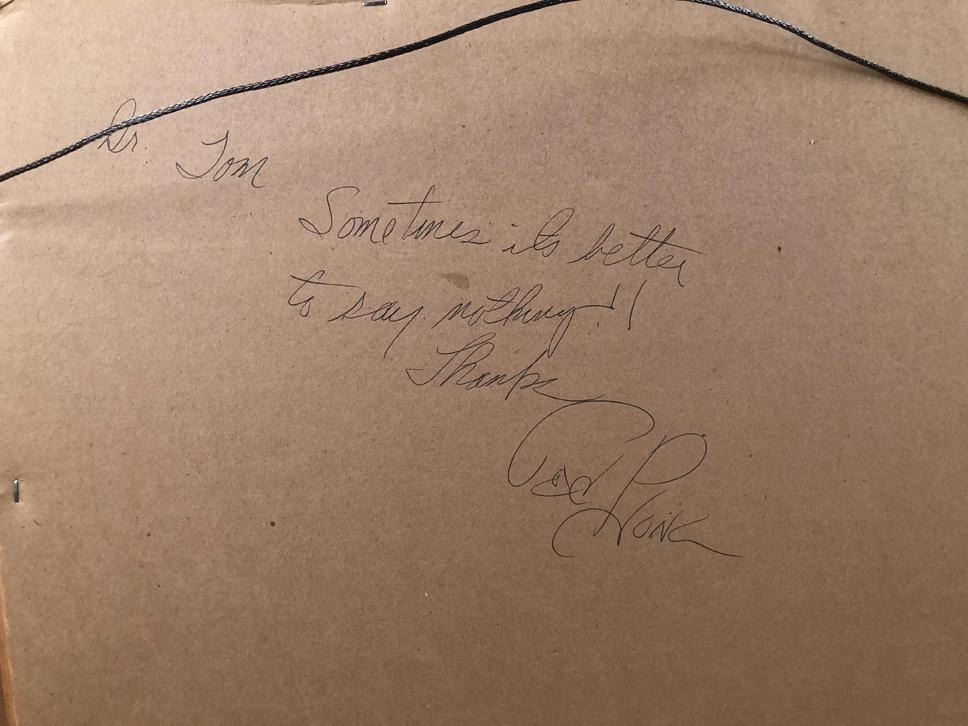 Dr. Tom
Sometimes its better
to say nothing!!
Thanks